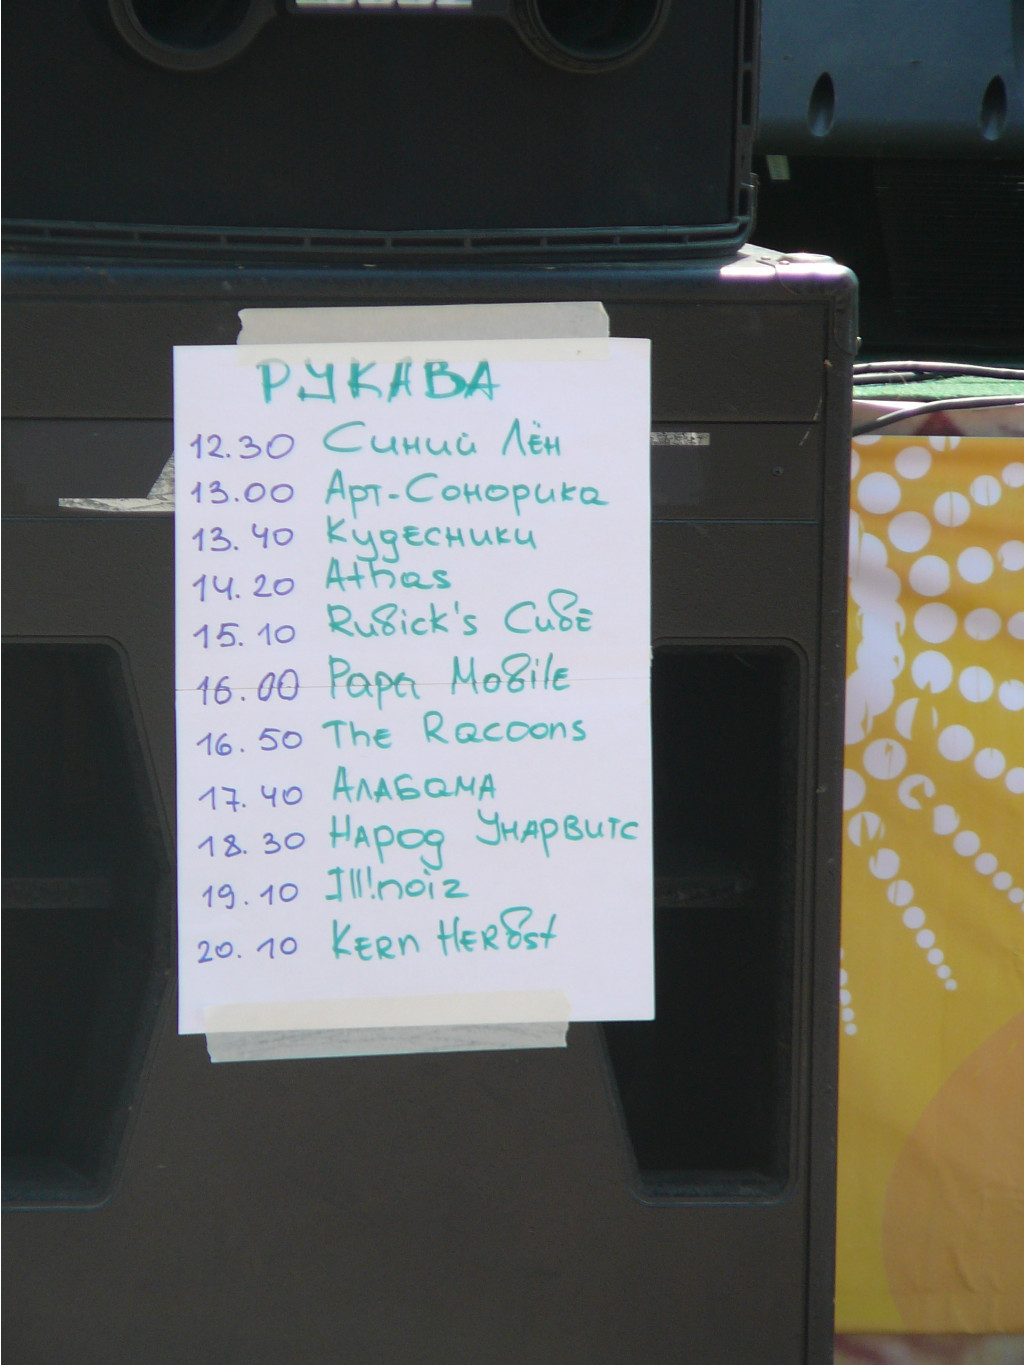 РУКАВА
12.30 Синий Лён
13.00 Арт-Сонорика
13.40 Кудесники
14.20 Athas
15.10 Rubick's Cube
16.00 Papa Mobile
16.50 The Racoons
17.40 Алабама
18.30 Народ Унарвитс
19.10 Ill!noiz
20.10 Kern Herbst